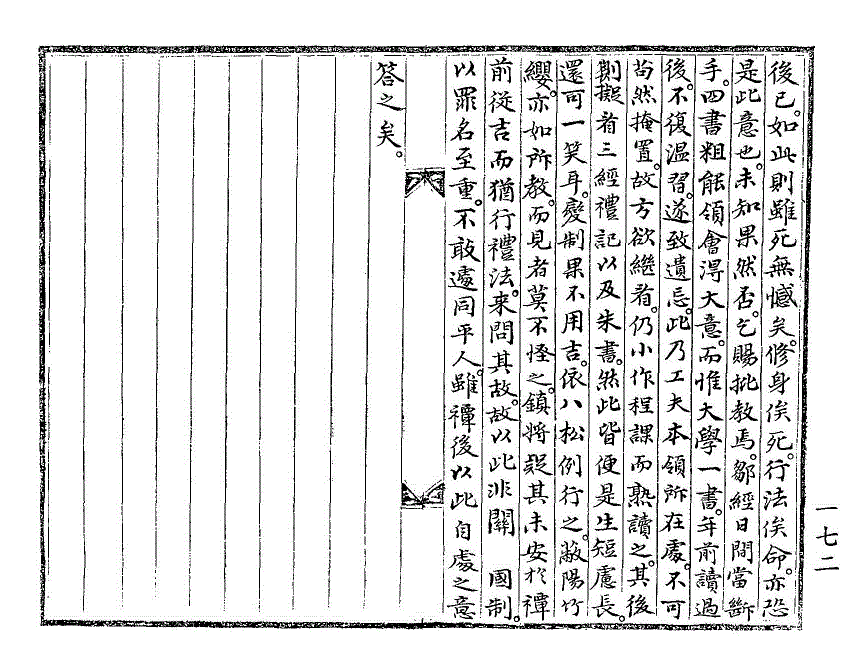 後已。如此則雖死無憾矣。修身俟死。行法俟命。亦恐
是此意也。未知果然否。乞賜批教焉。鄒經日間當斷
手。四書粗能領會得大意。而惟大學一書。年前讀過
後。不復溫習。遂致遺忘。此乃工夫本領所在處。不可
苟然掩置。故方欲繼看。仍小作程課而熟讀之。其後
劃擬看三經禮記以及朱書。然此皆便是生短慮長。
還可一笑耳。變制果不用吉。依八松例行之。蔽陽竹
纓。亦如所教。而見者莫不怪之。鎮將疑其未安於禫
前從吉而猶行禮法。來問其故。故以此非關　國制。
以罪名至重。不敢處同平人。雖禫後以此自處之意
答之矣。
一七二